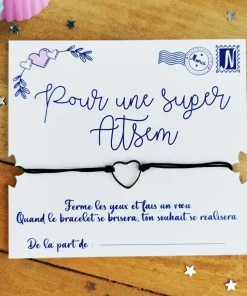 N
Pour une super
Atsem
Ferme les yeux et fais un vœu
Quand le bracelet se brisera, ton souhait se réalisera
De la part de :